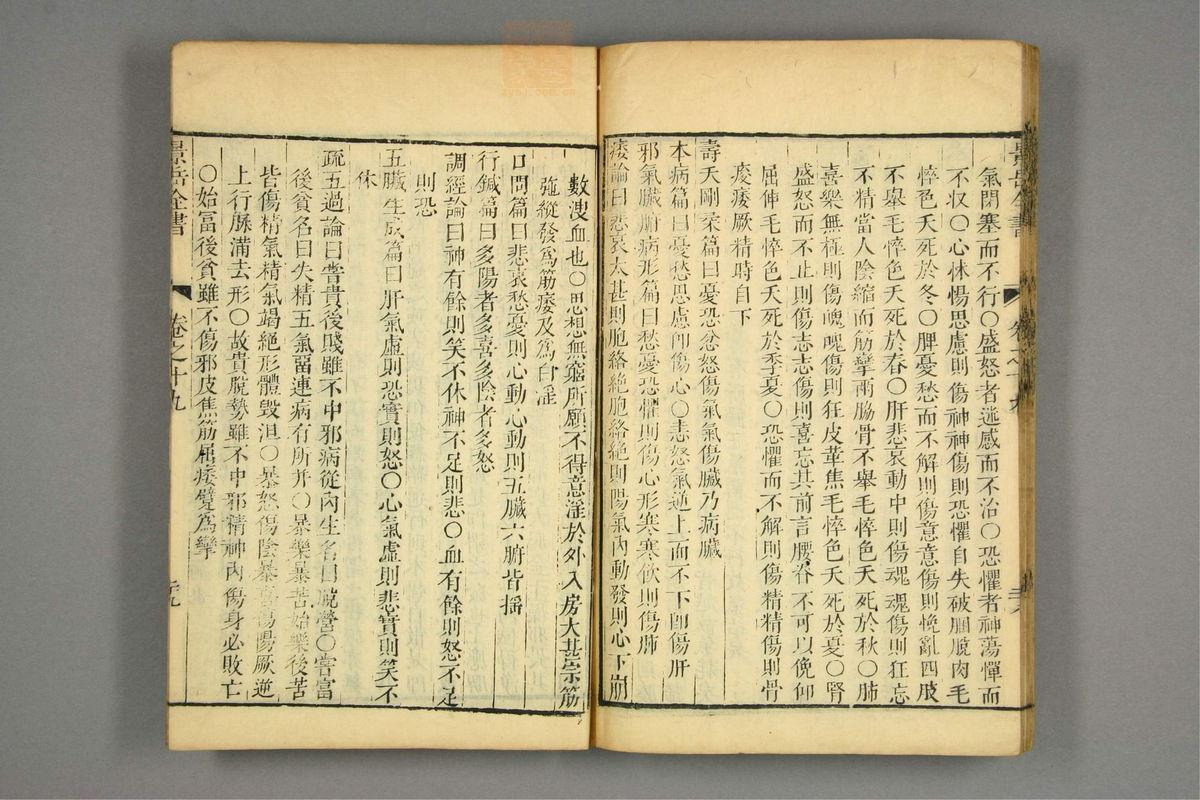 景岳全書
卷之十九
氣閉塞而不行〇盛怒者迷惑而不治〇恐懼者神蕩憚而
不収〇心怵惕思慮則傷神神傷則恐懼自失破䐃脫肉毛
悴色夭死於冬〇脾憂愁而不解則傷意意傷則悗亂四肢
不舉毛悴色夭死於春〇肝悲哀動中則傷魂魂傷則狂忘
不精當人陰縮而筋攣兩脇骨不舉毛悴色夭死於秋〇肺
喜樂無極則傷魄魄傷則狂皮革焦毛悴色夭死於夏〇腎
盛怒而不止則傷志志傷則喜忘其前言腰脊不可以俛仰
屈伸毛悴色夭死於季夏〇恐懼而不解則傷精精傷則骨
痠痿厥精時自下
壽夭剛柔篇曰憂恐忿怒傷氣氣傷臟乃病臟
本病篇曰憂愁思慮即傷心〇恚怒氣逆上而不下即傷肝
邪氣臟腑病形篇曰愁憂恐懼則傷心形寒寒飲則傷肺
痿論曰悲哀太甚則胞絡絶胞絡絶則陽氣內動發則心下崩
數溲血也〇思想無窮所願不得意淫於外入房太甚宗筋
弛縱發爲筋痿及爲白淫
口問篇曰悲哀愁憂則心動心動則五臟六腑皆搖
行鍼篇曰多陽者多喜多陰者多怒
調經論曰神有餘則笑不休神不足則悲〇血有餘則怒不足
則恐
五臟生成篇曰肝氣虛則恐實則怒〇心氣虛則悲實則笑不
休
疏五過論曰嘗貴後賤雖不中邪病從內生名曰脫營〇嘗富
後貧名曰失精五氣留連病有所并〇暴樂暴苦始樂後苦
皆傷精氣精氣竭絶形體毀沮〇暴怒傷陰暴喜傷陽厥逆
上行脈滿去形〇故貴脫勢雖不中邪精神內傷身必敗亡
〇始富後貧雖不傷邪皮焦筋屈痿躄爲攣
景岳全書
卷之十九